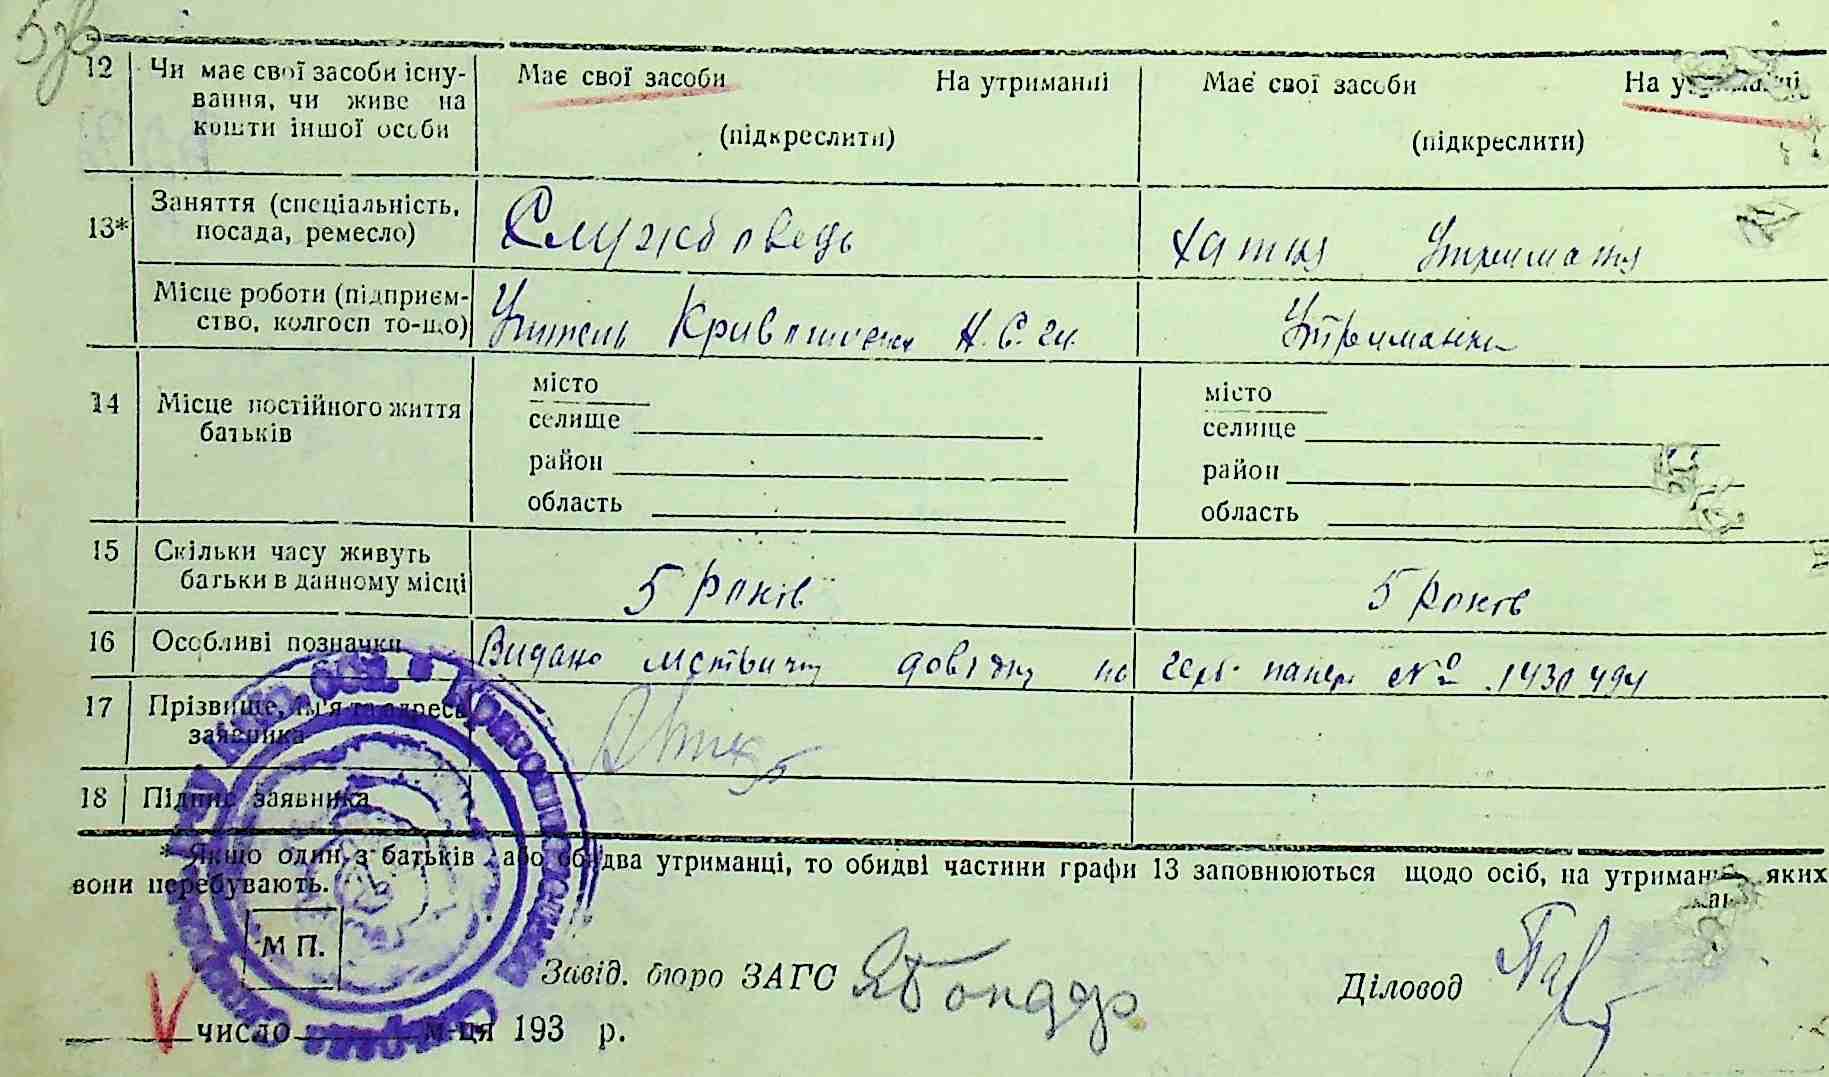 12 Чи має свої засоби існу- Має свої засоби На утриманні Має свої засоби На утриманні
вання, чи живе на
кошти іншої особи (підкреслити) (підкреслити)
13* Заняття (спеціальність, Службовець хатня утриманя
посада, ремесло)
Місце роботи (підприєм- Учитель Н.С.Ш. Утриманка
ство, колгосп то-що)
14 Місце постійного життя батьків
місто місто
селище селище
район район
область область
15 Скільки часу живуть 5 років 5 років
батьки в данному місці
16 Особливі позначки Видано довідку на герб. папері № 1430494
17 Прізвище, ім'я та адреса
заявника
18 Підпис заявника
* Якщо один з батьків або обидва утриманці, то обидві частини графи 13 заповнюються щодо осіб, на утриманні яких
вони перебувають.
М П.
Завід. бюро ЗАГС Діловод
число м-ця 193 р.